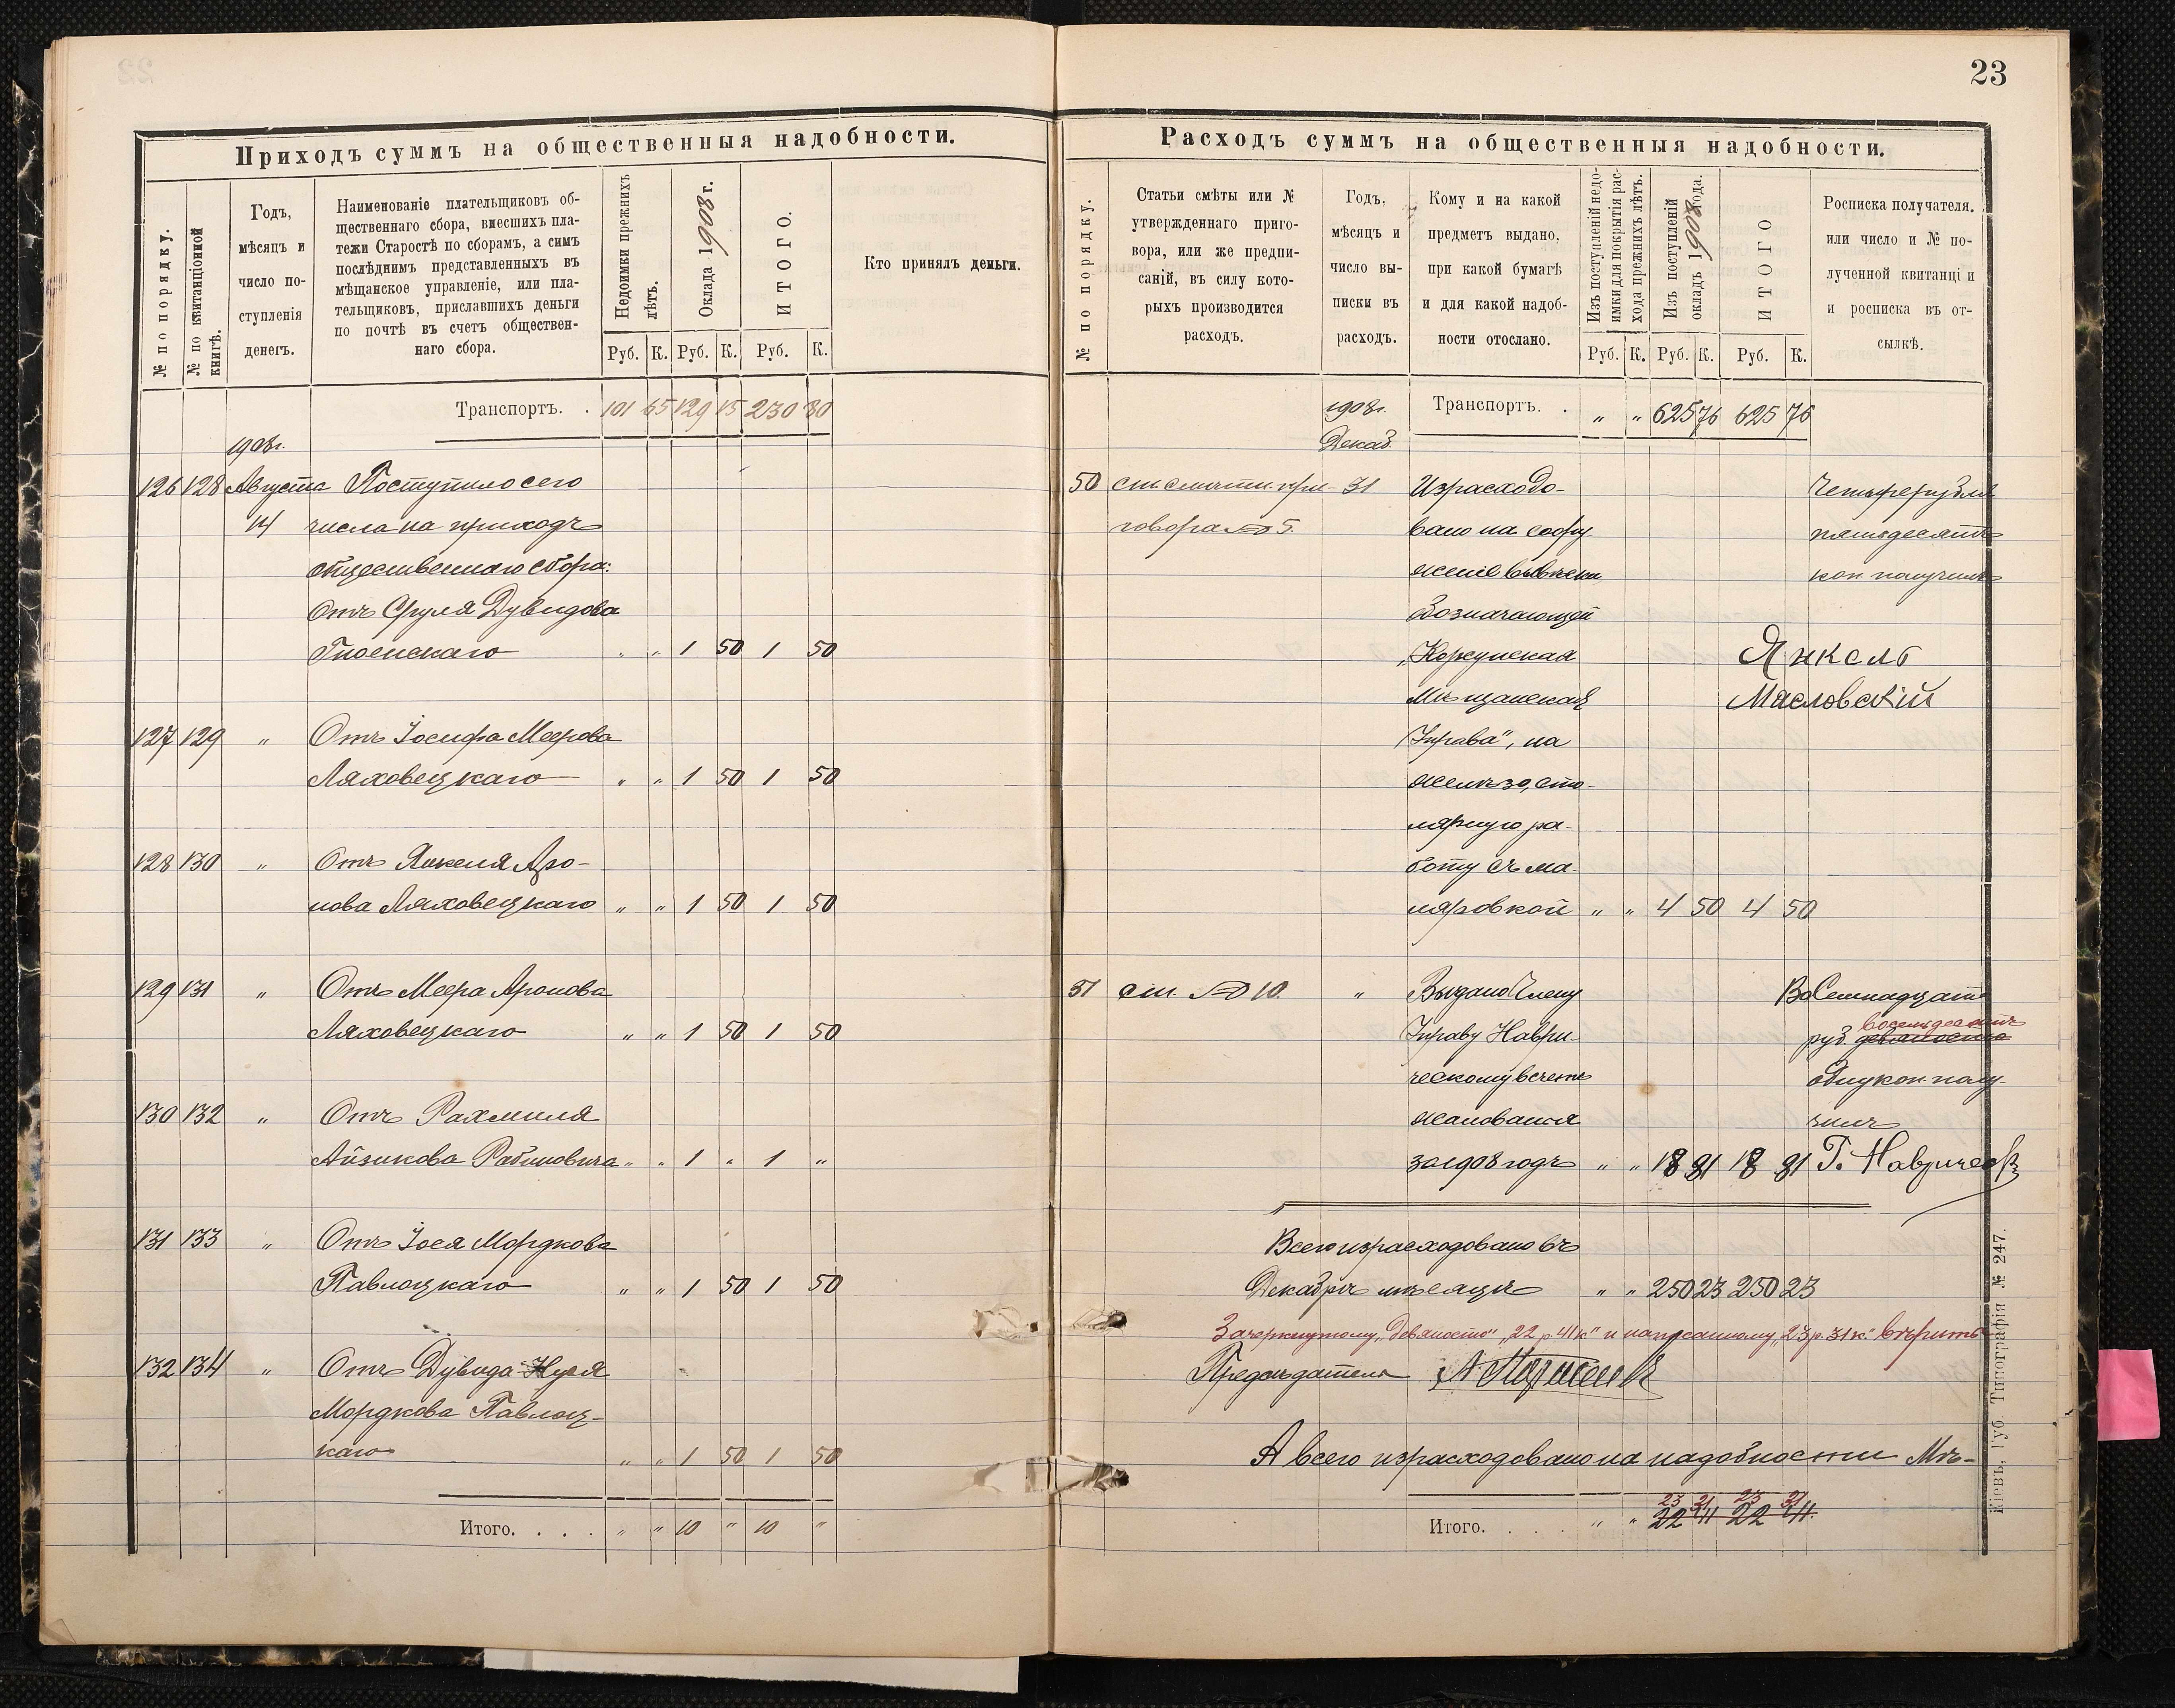 23
Приходъ суммъ на общественныя надобности.
№ по порядку.
№ по квитанціонной книгѣ.
Годъ,
мѣсяцъ и
число по-
ступленія
денегъ.
Наименованіе плательщиковъ об-
щественнаго сбора, внесшихъ пла-
тежи Старостѣ по сборамъ, а симъ
послѣднимъ представленныхъ въ
мѣщанское управленіе, или пла-
тельщиковъ, приславшихъ деньги
по почтѣ въ счетъ обществен-
наго сбора.
Недоимки прежнихъ лѣтъ.
Оклада 1908 г.
ИТОГО.
Кто принялъ деньги.
Руб. К. Руб. К. Руб. К.
Транспортъ. . 101 65 129 15 230 80
1908 г.
126 128 Августа Поступило сего
14 числа на приходъ
общественнаго сбора:
Отъ Сруля Дувидова
Гноенскаго " " 1 50 1 50
127 129 " Отъ Іосифа Меерова
Ляховецкаго " " 1 50 1 50
128 130 " Отъ Янкеля Аро-
нова Ляховецкаго " " 1 50 1 50
129 131 " Отъ Меера Аронова
Ляховецкаго " " 1 50 1 50
130 132 " Отъ Рахмиля
Айзикова Рабиновича " " 1 " 1 "
131 133 " Отъ Іося Мордкова
Павлоцкаго " " 1 50 1 50
132 134 " Отъ Дувида-Нуся
Мордкова Павлоц-
каго " " 1 50 1 50
Итого. . . . " " 10 " 10 "
Расходъ суммъ на общественныя надобности.
№ по порядку.
Статьи смѣты или №
утвержденнаго приго-
вора, или же предпи-
саній, въ силу кото-
рыхъ производится
расходъ.
Годъ,
мѣсяцъ и
число вы-
писки въ
расходъ.
Кому и на какой
предметъ выдано,
при какой бумагѣ
и для какой надоб-
ности отослано.
Изъ поступленій недо-
имки для покрытія рас-
хода прежнихъ лѣтъ.
Изъ поступленій
окладъ 1908 года.
ИТОГО
Росписка получателя.
или число и № по-
лученной квитанціи
и росписка въ от-
сылкѣ.
Руб. К. Руб. К. Руб. К.
1908 г. Транспортъ. . " " 625 76 625 76
Декаб.
50 ст. смѣты при- 31 Израсходо- Четыре рубля
говора № 5. вано на соору пятьдесятъ
женіе вывѣски коп. получилъ
обозначающей
„Корсунская Янкель
Мѣщанская Масловскій
Управа“, на
желѣзо, сто-
лярную ра-
боту съ ма-
ляровкой " " 4 50 4 50
51 ст. № 10. " Выдано Члену Восемнадцать
восемьдесятъ
Управы Наври- руб. девяносто
ческому въ счетъ одну коп. полу-
жалованья чилъ
за 1908 годъ " " 18 81 18 81 Г. Навричес
Всего израсходовано въ
Декабрѣ мѣсяцѣ " " 250 23 250 23
Зачеркнутому „девяносто“ „22 р. 41 к“ и написанному „23 р. 31 к.“ вѣрить
Предсѣдатель
А всего израсходовано на надобности Мѣ-
23 31 23 31
Итого. . . . " " 22 41 22 41.
Кіевъ, Губ. Типографія № 247.